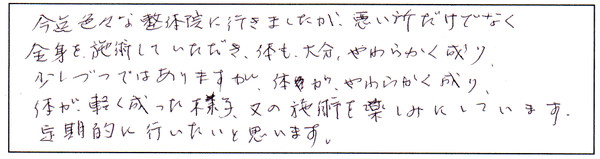 今迄色々な整体院に行きましたが、悪い所だけでなく
全身を施術していただき、体も、大分、やわらかく成り、
少しづつではありますが、体が、やわらかく成り、
体が、軽く成った様子、又の施術を楽しみにしています。
定期的に行いたいと思います。